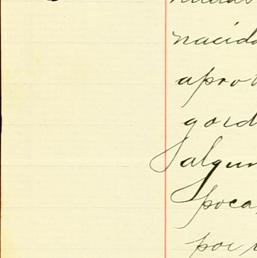 nacido
apro
gord
algun
poca
por